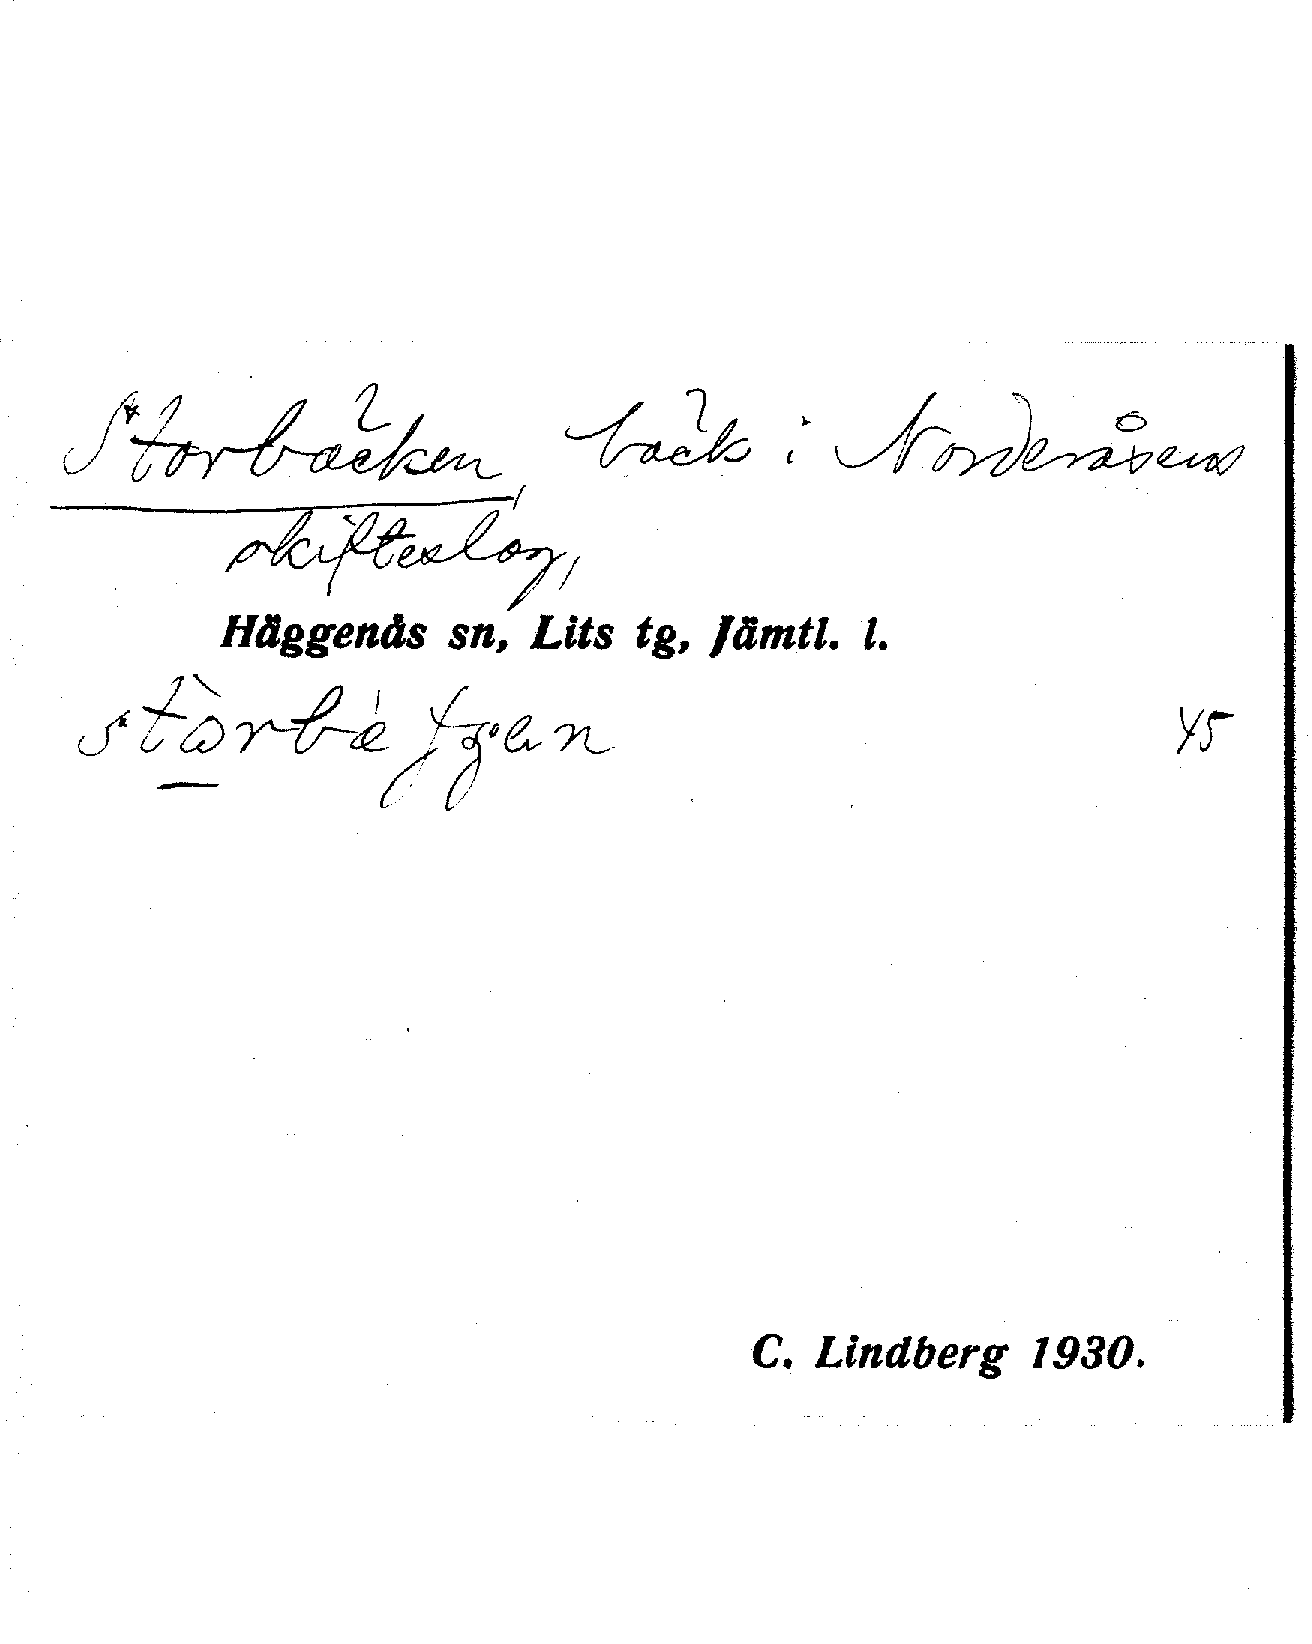 Storbäcken, bäck i Norderåsens
skifteslag,
Häggenås sn, Lits tg, Jämtl. l.
45
C. Lindberg 1930.